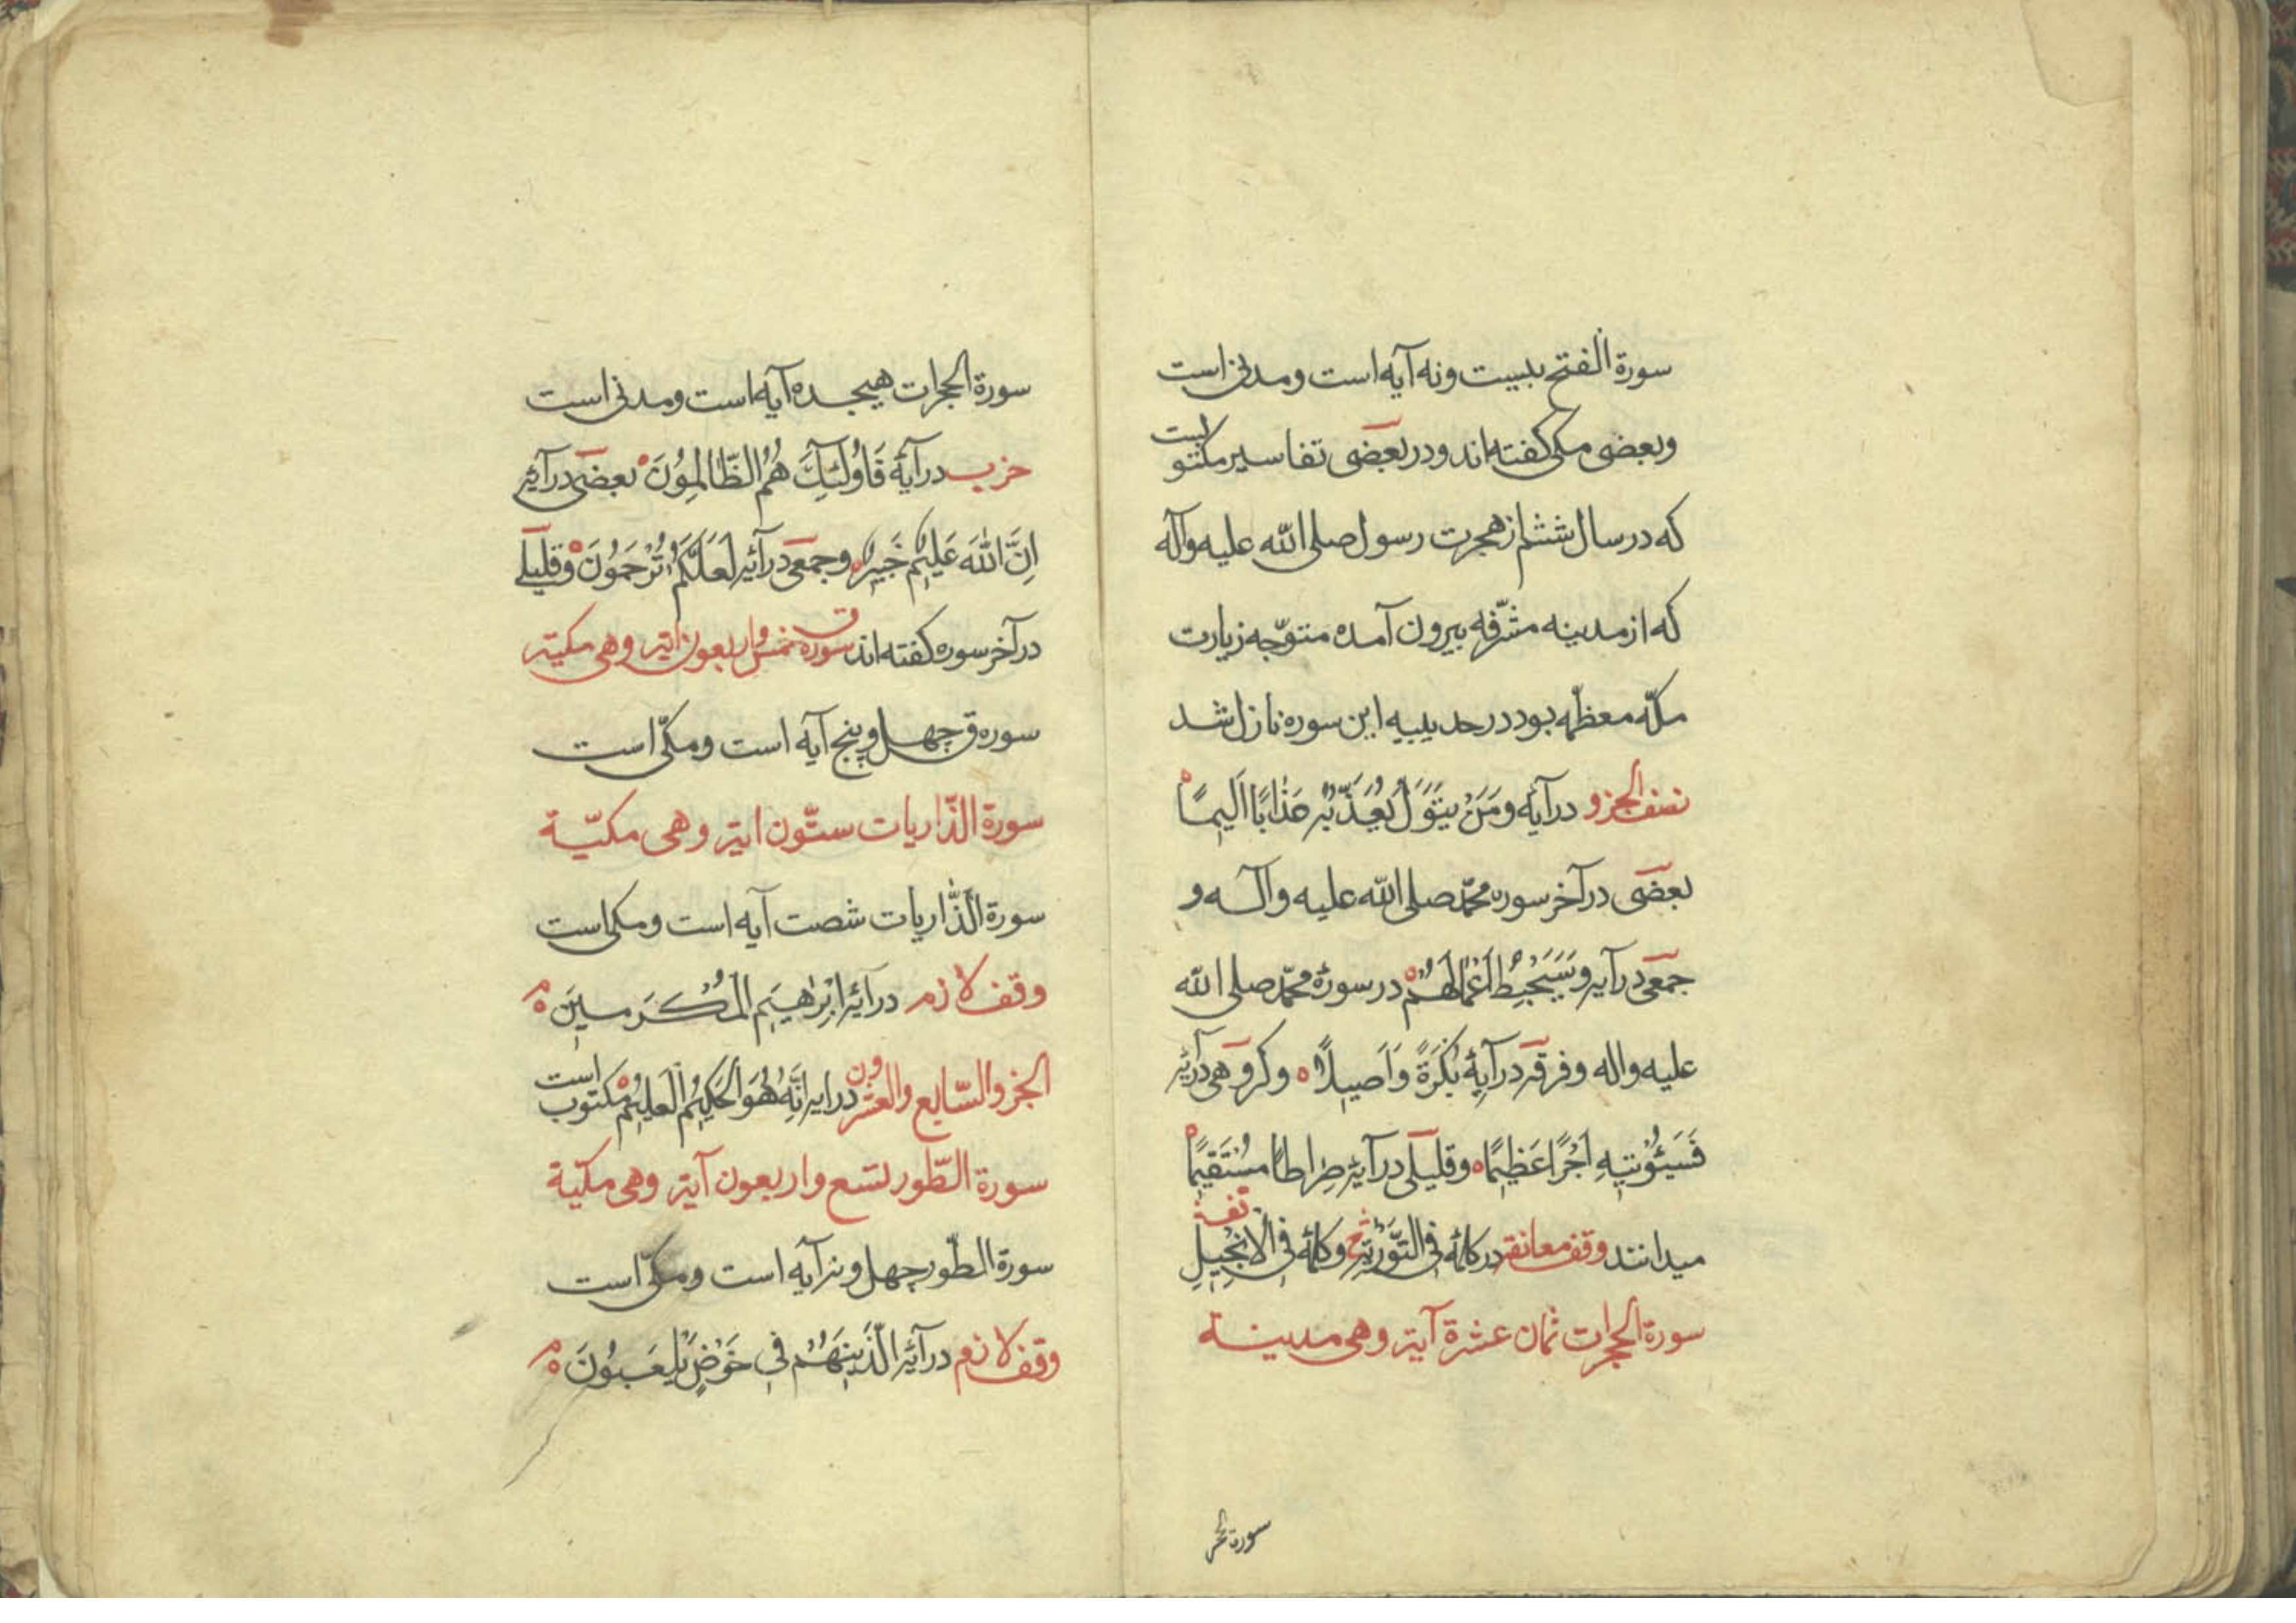 سورة الفتح بیست ونه آیه است ومدنی است
وبعضی مکی کفته اند ودر بعضی تفاسیر مکتوبست
که در سال ششم از هجرت رسول صلی الله علیه وآله
که از مدینه مشرّفه بیرون آمده متوجّه زیارت
مکّه معظّمه بود در حدیبیه این سوره نازل شد
نصف الجزو در آیهٔ ومَنْ یَتَوَلَّ یُعَذِّبْهُ عَذٰابًا اَلیمًا
بعضی در آخر سوره محمّد صلی الله علیه وآله و
جمعی در آیه وَسَیُحْبِطُ اَعْمٰالَهُمْ در سورهٔ محمّد صلی الله
علیه واله وفرقه در آیهٔ بُکْرَةً وَاَصیلًا وکروهی در آیه
فَسَیُؤْتیهِ اَجْرًا عَظیمًا وقلیلی در آیه صِراطًا مُسْتَقیمًا
میدانند وقف معانقه در کلمهٔ فِی التَّوْریٰةِ وکلمهٔ فِی الْاِنْجیلِ
سورة الحجرات ثمان عشرة آیة وهی مدینة
سورة الحجر
سورة الحجرات هیجده آیه است ومدنی است
حزب در آیهٔ فَاُولٰئِكَ هُمُ الظّٰالِمُونَ بعضی در آیه
اِنَّ اللّٰهَ عَلیمٌ خَبیرٌ وجمعی در آیه لَعَلَّکُمْ تُرْحَمُونَ وقلیلی
در آخر سوره کفته اند سوره ق خمس واربعون آیة وهی مکیة
سوره ق چهل وپنج آیه است ومکّی است
سورة الذّاریات ستّون ایة وهی مکیّة
سورة الذّاریات شصت آیه است ومکی است
وقف لازم در آیه اِبْرٰهیمَ الْمُکْرَمینَ م
الجزو السّابع والعشرون در ایه اِنَّهُ هُوَ الْحَکیمُ الْعَلیمُ مکتوب است
سورة الطّور تسع واربعون آیة وهی مکیّة
سورة الطّور چهل ونه آیه است ومکّی است
وقف لازم در آیه الَّذینَ هُمْ فی خَوْضٍ یَلْعَبُونَ م